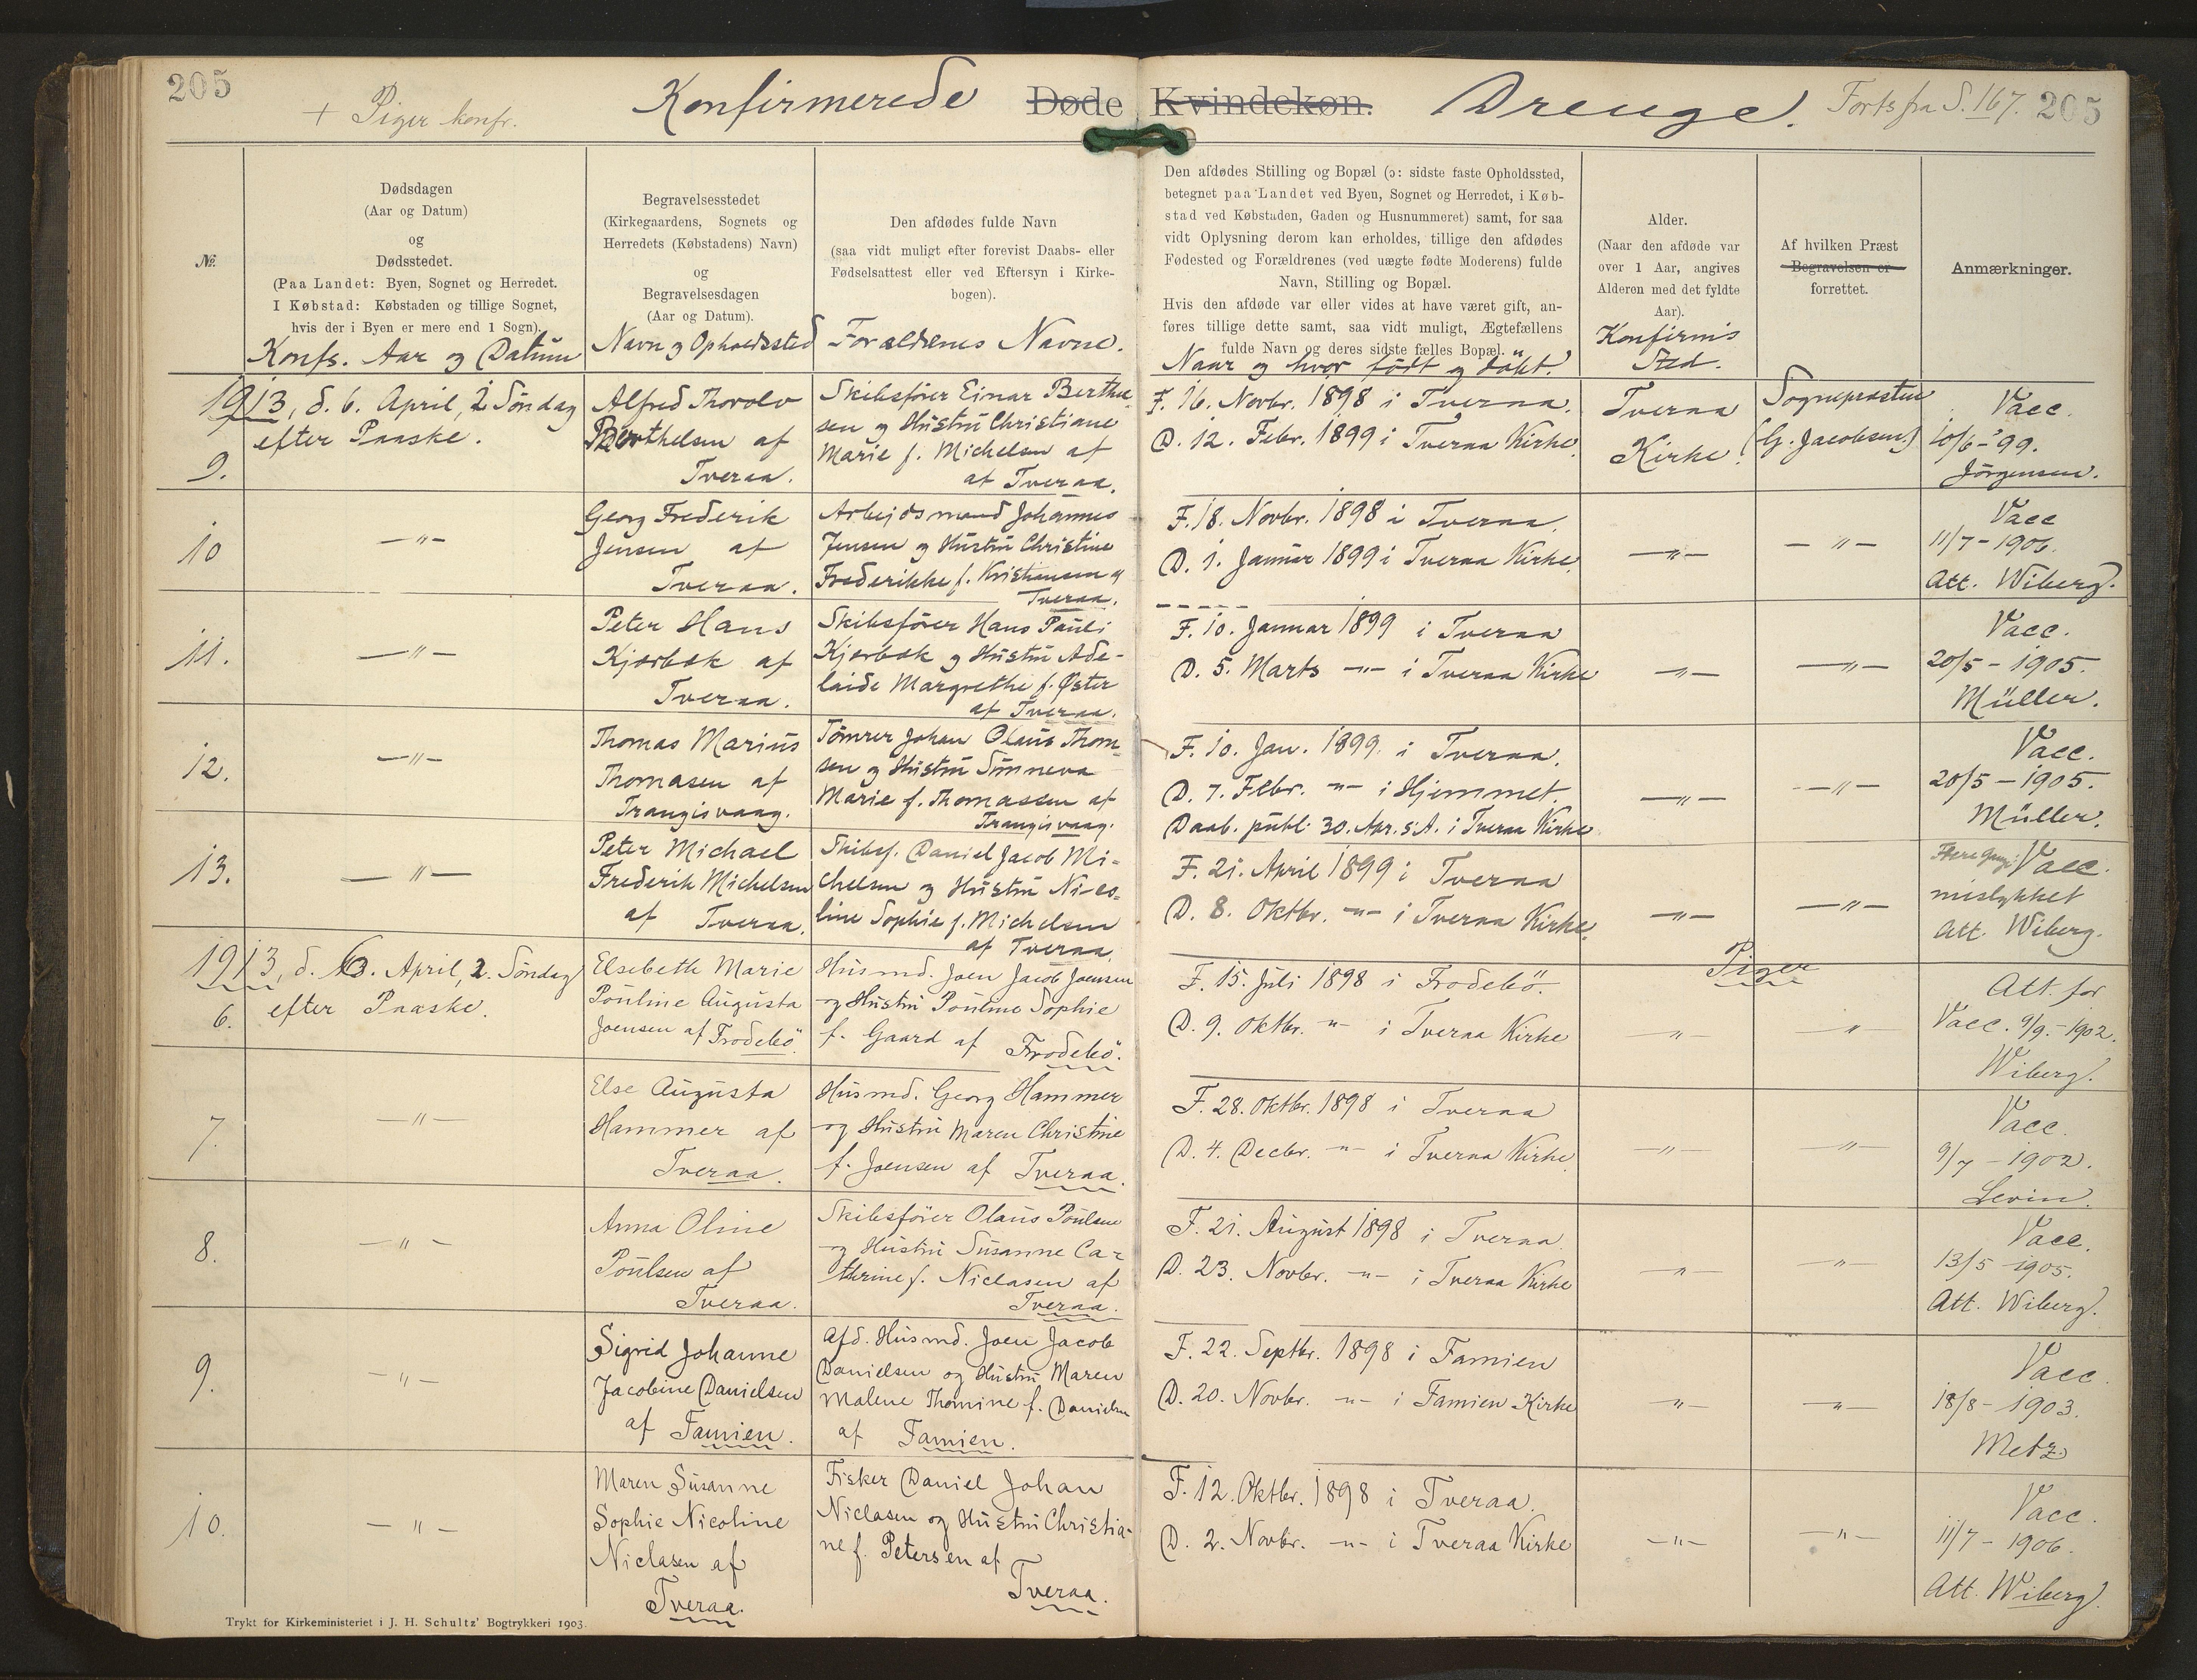 205
+ Piger konfr.
Konfirmerede Døde Kvindekøn. Drenge.
Forts fra S. 167.
205
№.
Dødsdagen
(Aar og Datum)
og
Dødsstedet.
(Paa Landet: Byen, Sognet og Herredet.
I Købstad: Købstaden og tillige Sognet,
hvis der i Byen er mere end 1 Sogn).
Konfs. Aar og Datum
Begravelsesstedet
(Kirkegaardens, Sognets og
Herredets (Købstadens) Navn)
og
Begravelsesdagen
(Aar og Datum).
Navn og Opholdssted
Den afdødes fulde Navn
(saa vidt muligt efter forevist Daabs- eller
Fødselsattest eller ved Eftersyn i Kirke-
bogen).
Forældrenes Navne.
Den afdødes Stilling og Bopæl (ɔ: sidste faste Opholdssted,
betegnet paa Landet ved Byen, Sognet og Herredet, i Køb-
stad ved Købstaden, Gaden og Husnummeret) samt, for saa
vidt Oplysning derom kan erholdes, tillige den afdødes
Fødested og Forældrenes (ved uægte fødte Moderens) fulde
Navn, Stilling og Bopæl.
Hvis den afdøde var eller vides at have været gift, an-
føres tillige dette samt, saa vidt muligt, Ægtefællens
fulde Navn og deres sidste fælles Bopæl.
Naar og hvor født og døbt.
Alder.
(Naar den afdøde var
over 1 Aar, angives
Alderen med det fyldte
Aar).
Konfirm's
Sted.
Af hvilken Præst
Begravelsen er
forrettet.
Anmærkninger.
1913, d. 6. April, 2 Søndag
efter Paaske.
9.
Alfred Thorolv
Berthelsen af
Tveraa.
Skibsfører Einar Berthel-
sen og Hustru Christiane
Marie f. Michelsen af
af Tveraa.
F. 16. Novbr. 1898 i Tveraa.
D. 12. Febr. 1899 i Tveraa Kirke.
Tveraa
Kirke.
Sognepræsten
(G. Jacobsen)
Vacc.
10/6 - '99.
Jörgensen.
10
—〃—
Georg Frederik
Jensen af
Tveraa.
Arbejdsmand Johannes
Jensen og Hustru Christine
Frederikke f. Kristiansen af
Tveraa.
F. 18. Novbr. 1898 i Tveraa.
D. 1. Januar 1899 i Tveraa Kirke.
—〃—
—〃—
Vacc
11/7 - 1906.
Att. Wiberg.
11.
—〃—
Peter Hans
Kjærbæk af
Tveraa.
Skibsfører Hans Pauli
Kjærbæk og Hustru Ade-
laide Margrethe f. Øster
af Tveraa.
F. 10. Januar 1899 i Tveraa
D. 5. Marts —〃— i Tveraa Kirke
—〃—
—〃—
Vacc.
20/5 - 1905.
Müller.
12.
—〃—
Thomas Marius
Thomasen af
Trangisvaag.
Tømrer Johan Olaus Thom-
sen og Hustru Sunneva
Marie f. Thomassen af
Trangisvaag.
F. 10. Jan. 1899. i Tveraa.
D. 7. Febr. —〃— i Hjemmet.
Daab. publ. 30. Apr. s. A. i Tveraa Kirke
—〃—
—〃—
Vacc.
20/5 - 1905.
Müller.
13.
—〃—
Peter Michael
Frederik Michelsen
af Tveraa.
Skibsf. Daniel Jacob Mi-
chelsen og Hustru Nico-
line Sophie f. Michelsen
af Tveraa.
F. 21. April 1899 i Tveraa
D. 8. Oktbr. —〃— i Tveraa Kirke.
—〃—
—〃—
Vacc.
mislykket
Att. Wiberg.
1913, d. 6. April, 2. Søndag
efter Paaske.
6.
Elsebeth Marie
Pouline Augusta
Joensen af Frodebö.
Husmd. Joen Jacob Joensen
og Hustru Pouline Sophie
f. Gaard af Frodebö.
F. 15. Juli 1898 i Frodebö.
D. 9. Oktbr. —〃— i Tveraa Kirke
Piger
—〃—
〃
Att. for
Vacc. 9/9. - 1902.
Wiberg.
7.
—〃—
Else Augusta
Hammer af
Tveraa.
Husmd. Georg Hammer
og Hustru Maren Christine
f. Joensen af Tveraa.
F. 28. Oktbr. 1898 i Tveraa
D. 4. Decbr. —〃— i Tveraa Kirke.
—〃—
—〃—
Vacc.
9/7 - 1902.
Levin.
8.
—〃—
Anna Oline
Poulsen af
Tveraa.
Skibsfører Olaus Poulsen
og Hustru Susanne Ca-
thrine f. Niclasen af
Tveraa.
F. 21. August 1898 i Tveraa.
D. 23. Novbr. —〃— i Tveraa Kirke
—〃—
—〃—
Vacc.
13/5 - 1905.
Att. Wiberg.
9.
—〃—
Sigrid Johanne
Jacobine Danielsen
af Famien.
Afd. Husmd. Joen Jacob
Danielsen og Hustru Maren
Malene Thomine f. Danielsen
af Famien.
F. 22. Septbr. 1898 i Famien
D. 20. Novbr. —〃— i Famien Kirke
—〃—
—〃—
Vacc.
18/8 - 1903.
Metz
10.
—〃—
Maren Susanne
Sophie Nicoline
Niclasen af
Tveraa.
Fisker Daniel Johan
Niclasen og Hustru Christia-
ne f. Petersen af
Tveraa.
F. 12. Oktbr. 1898 i Tveraa.
D. 2. Novbr. —〃— i Tveraa Kirke
—〃—
—〃—
Vacc.
11/7 - 1906.
Att. Wiberg.
Trykt for Kirkeministeriet i J. H. Schultz' Bogtrykkeri 1903.